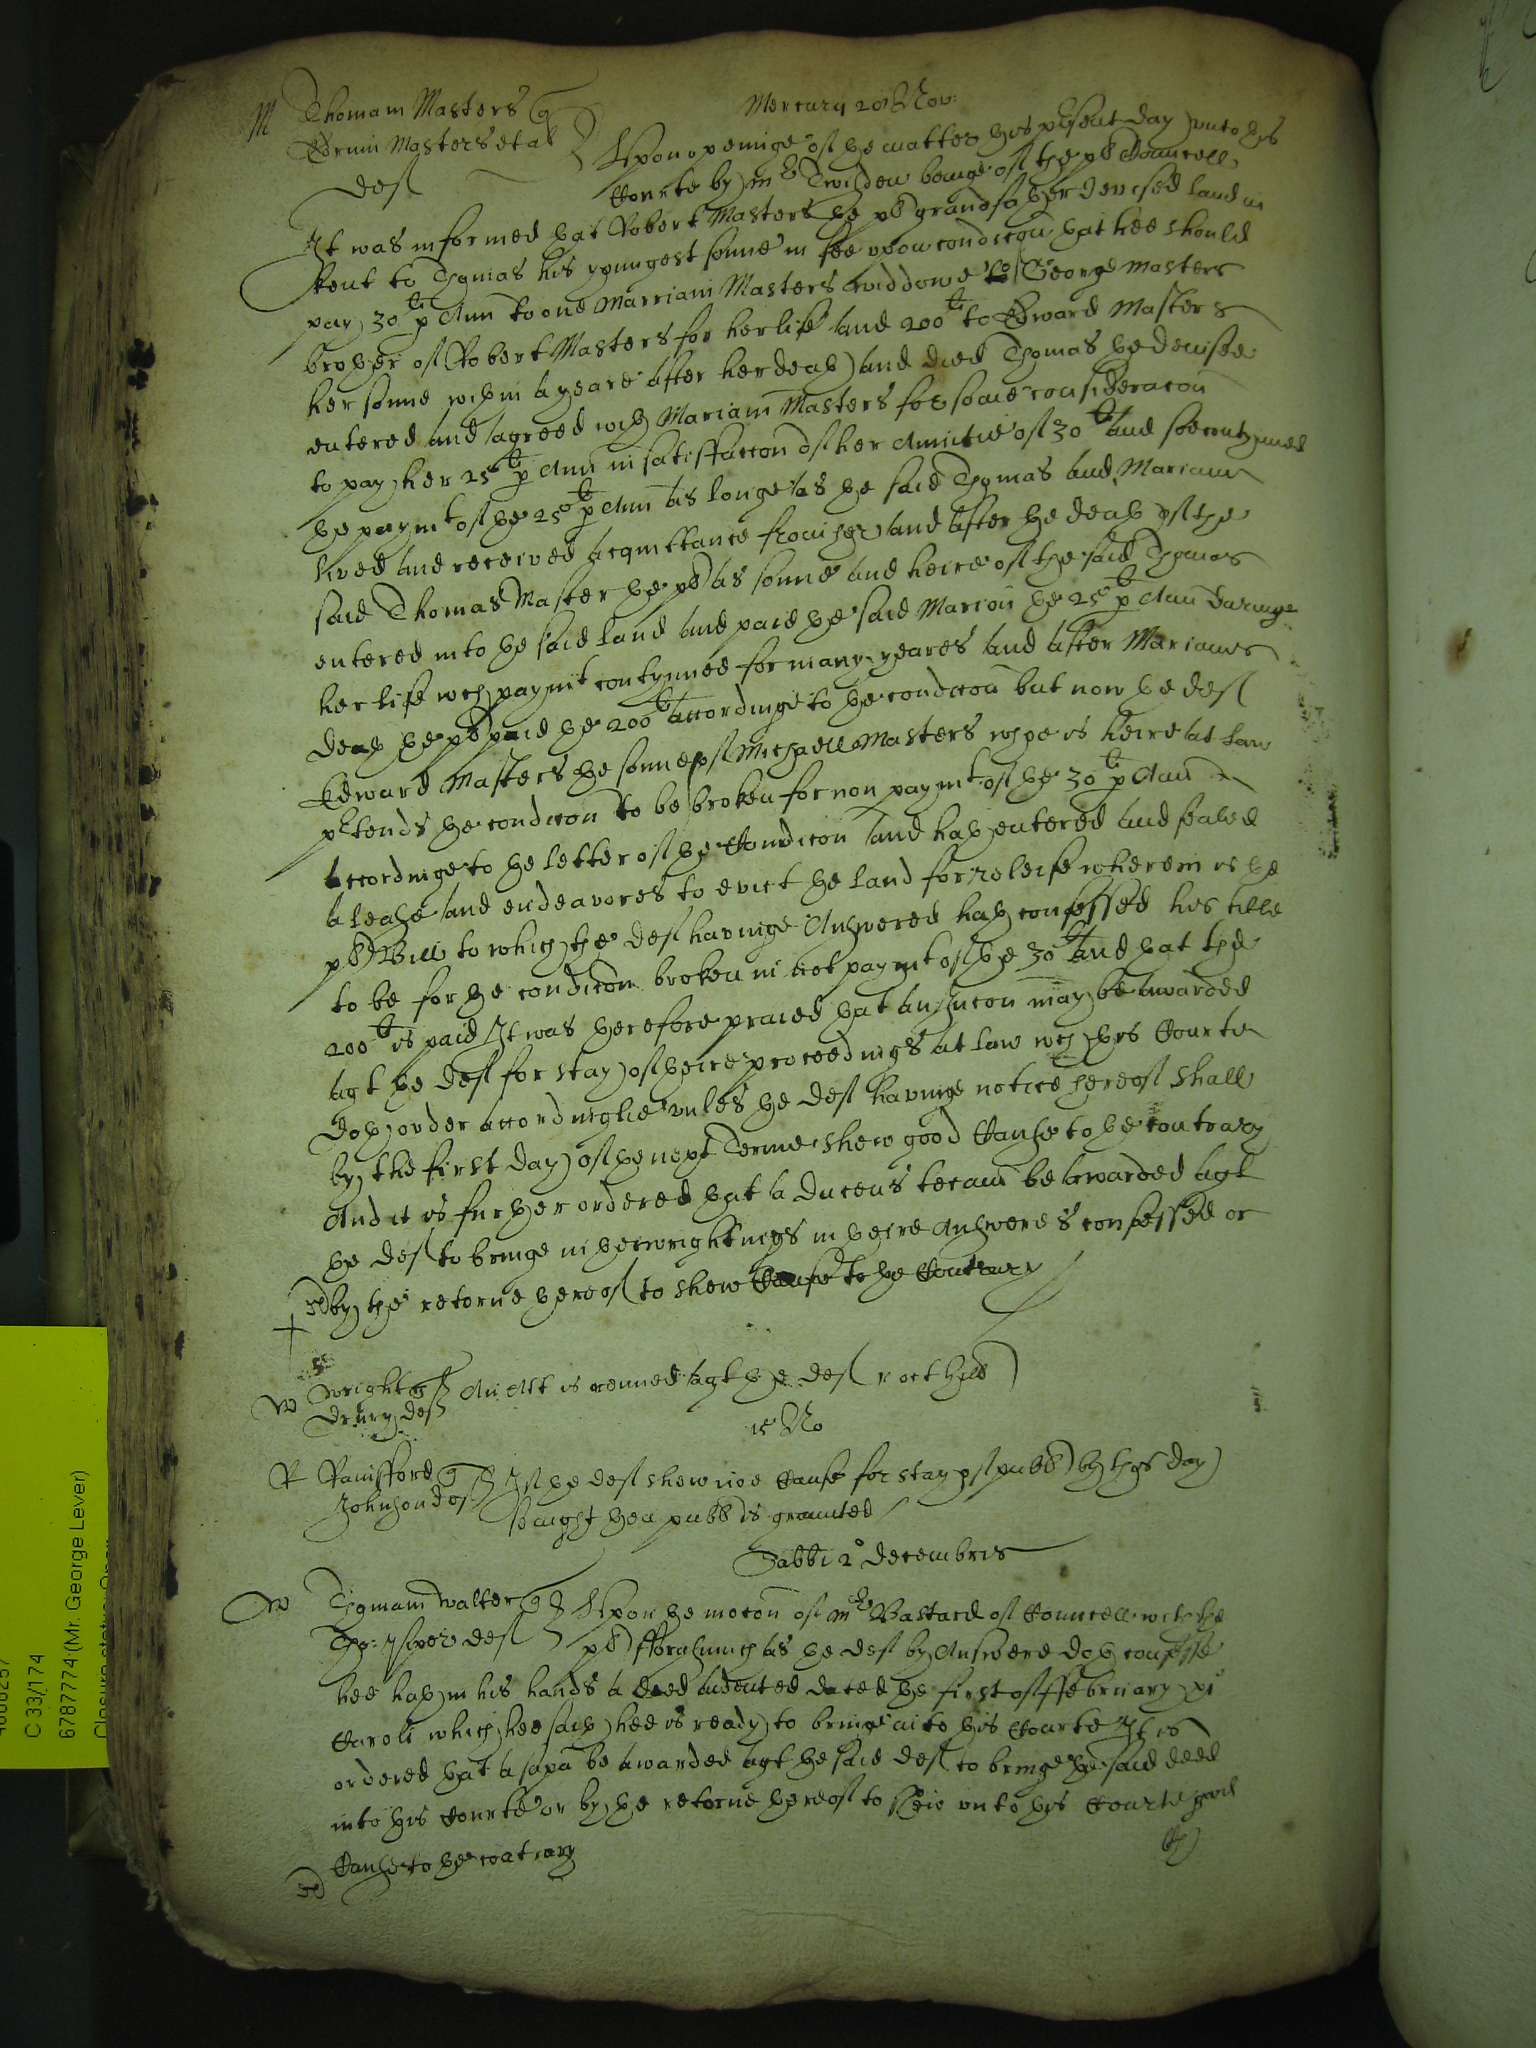 Mercury 20 Nov:
M Thomam Masters q
Edrum Masters et al
def
Upon openinge of ye matter this present day unto this
Courte by mr Twisden beinge of the pl Councell
It was informed yat Robert Masters ye pl grandfather devised land in
Kent to Thomas his youngest sonne in fee upon condicon yat hee should
pay 30li p Ann to one Marriam Masters widdowe to George Masters
brother of Robert Masters for her life and 200li to Edward Masters
her sonne within a yeare after her death and died Thomas ye devisee
entered and agreed with Mariam Masters for some consideracon
to pay her 25li p Ann in satisfaccon of her Annuitie of 30li and soe contynued
ye paymt of ye 25li p Ann as longe as ye said Thomas and Mariam
lived and received acquittance from her and after ye death of the
said Thomas Master ye pl as sonne and heire of the said Thomas
entered into ye said land and paid ye said Marion ye 25li p Ann duringe
her life wch paymt contynued for many yeares and after Mariams
death ye pl paid ye 200li accordinge to ye condicon but now ye def
Edward Masters ye sonne of Michaell Masters whoe is heire at law
ptends ye condicon to be broken for non paymt of ye 30li p Ann
accordinge to ye letter of ye Condicon and hath entered and sealed
a lease and endeavores to evict ye land for releife wherein is ye
pl Bill to which the def havinge Answered hath confessed his title
to be for ye condicon broken in not paymt of ye 30li and yat the
200li is paid It was therefore praied yat an Iniuncon may be awarded
agt ye def for stay of theire proceedings at law wch this Courte
doth order accordinglie unles ye def havinge notice hereof shall
by the first day of ye next Terme shew good Cause to ye contrary
And it is further ordered yat a Ducens tecum be awarded agt
ye def to bringe in ye wrightings in theire Answeres confessed or
by the retorne thereof to shew Cause to ye Contrary
W Wright q
Drury def
An Att is renued agt ye def
15 No
R Rainsford q
Johnson def
If ye def shew noe Cause for stay of publ by this day
then publ is graunted
Sabbi 2o Decembris
W Thomam Walter q
def
Upon ye mocon of mr Bastard of Councell with the
pl fforasmuch as ye def by Answere doth confesse
hee hath in his hands a deed indented dated ye first of ffebruary xi
Caroli which hee saith hee is ready to bringe into this Courte It is
ordered yat a spa be awarded agt ye said def to bringe ye said deed
into this Courte or by ye retorne thereof to shew unto this Courte good
Cause to ye contrary
C 33/174
6787774 (Mr. George Lever)